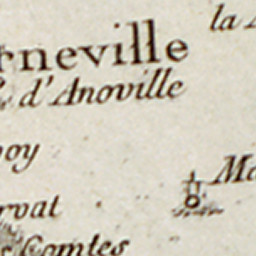 la
rneville
d'Anoville
oy
Ma
rvat
Comtes